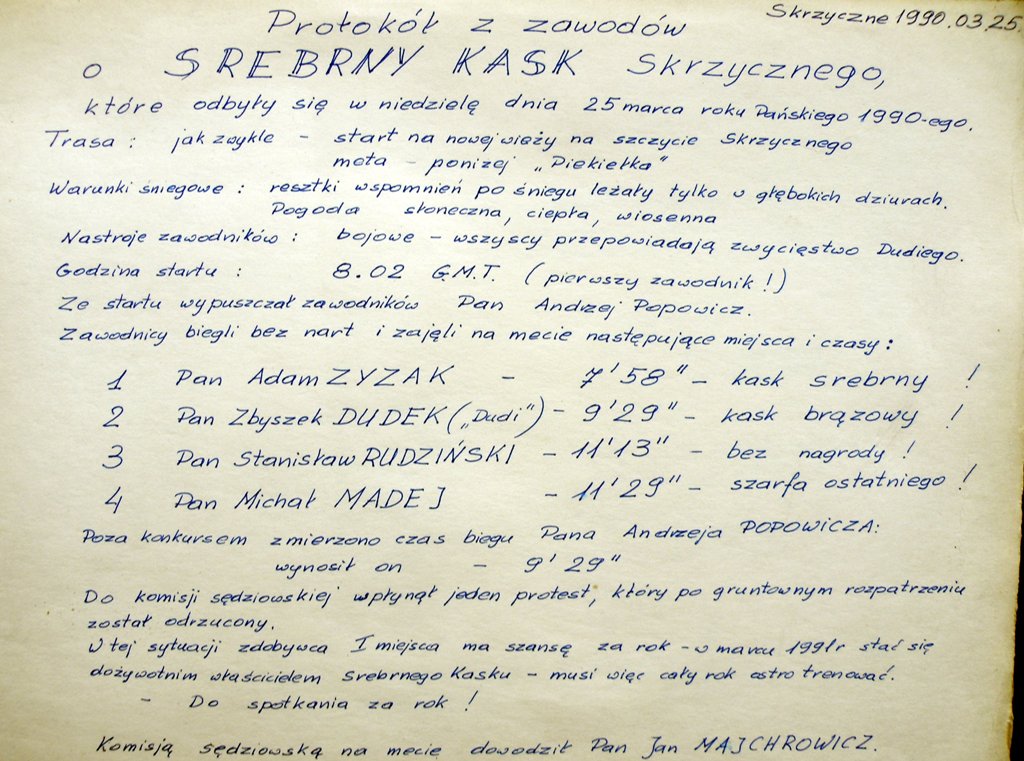 Skrzyczne 1990.03.25.
Protokół z zawodów
o SREBRNY KASK Skrzycznego,
które odbyły się w niedzielę dnia 25 marca roku Pańskiego 1990-ego.
Trasa : jak zwykle - start na nowej wieży na szczycie Skrzycznego
meta - poniżej „Piekiełka"
Warunki śniegowe : resztki wspomnień po śniegu leżały tylko w głębokich dziurach.
Pogoda słoneczna, ciepła, wiosenna
Nastroje zawodników : bojowe - wszyscy przepowiadają zwycięstwo Dudiego.
Godzina startu : 8.02 G.M.T. (pierwszy zawodnik!)
Ze startu wypuszczał zawodników Pan Andrzej Popowicz.
Zawodnicy biegli bez nart i zajęli na mecie następujące miejsca i czasy :
1 Pan Adam ZYZAK - 7'58" - kask srebrny !
2 Pan Zbyszek DUDEK („Dudi") - 9'29" - kask brązowy !
3 Pan Stanisław RUDZIŃSKI - 11'13" - bez nagrody !
4 Pan Michał MADEJ - 11'29" - szarfa ostatniego !
Poza konkursem zmierzono czas biegu Pana Andrzeja POPOWICZA:
wynosił on - 9'29"
Do komisji sędziowskiej wpłynął jeden protest, który po gruntownym rozpatrzeniu
został odrzucony.
W tej sytuacji zdobywca I miejsca ma szansę za rok - w marcu 1991r stać się
dożywotnim właścicielem Srebrnego Kasku - musi więc cały rok ostro trenować.
- Do spotkania za rok !
Komisją sędziowską na mecie dowodził Pan Jan MAJCHROWICZ.